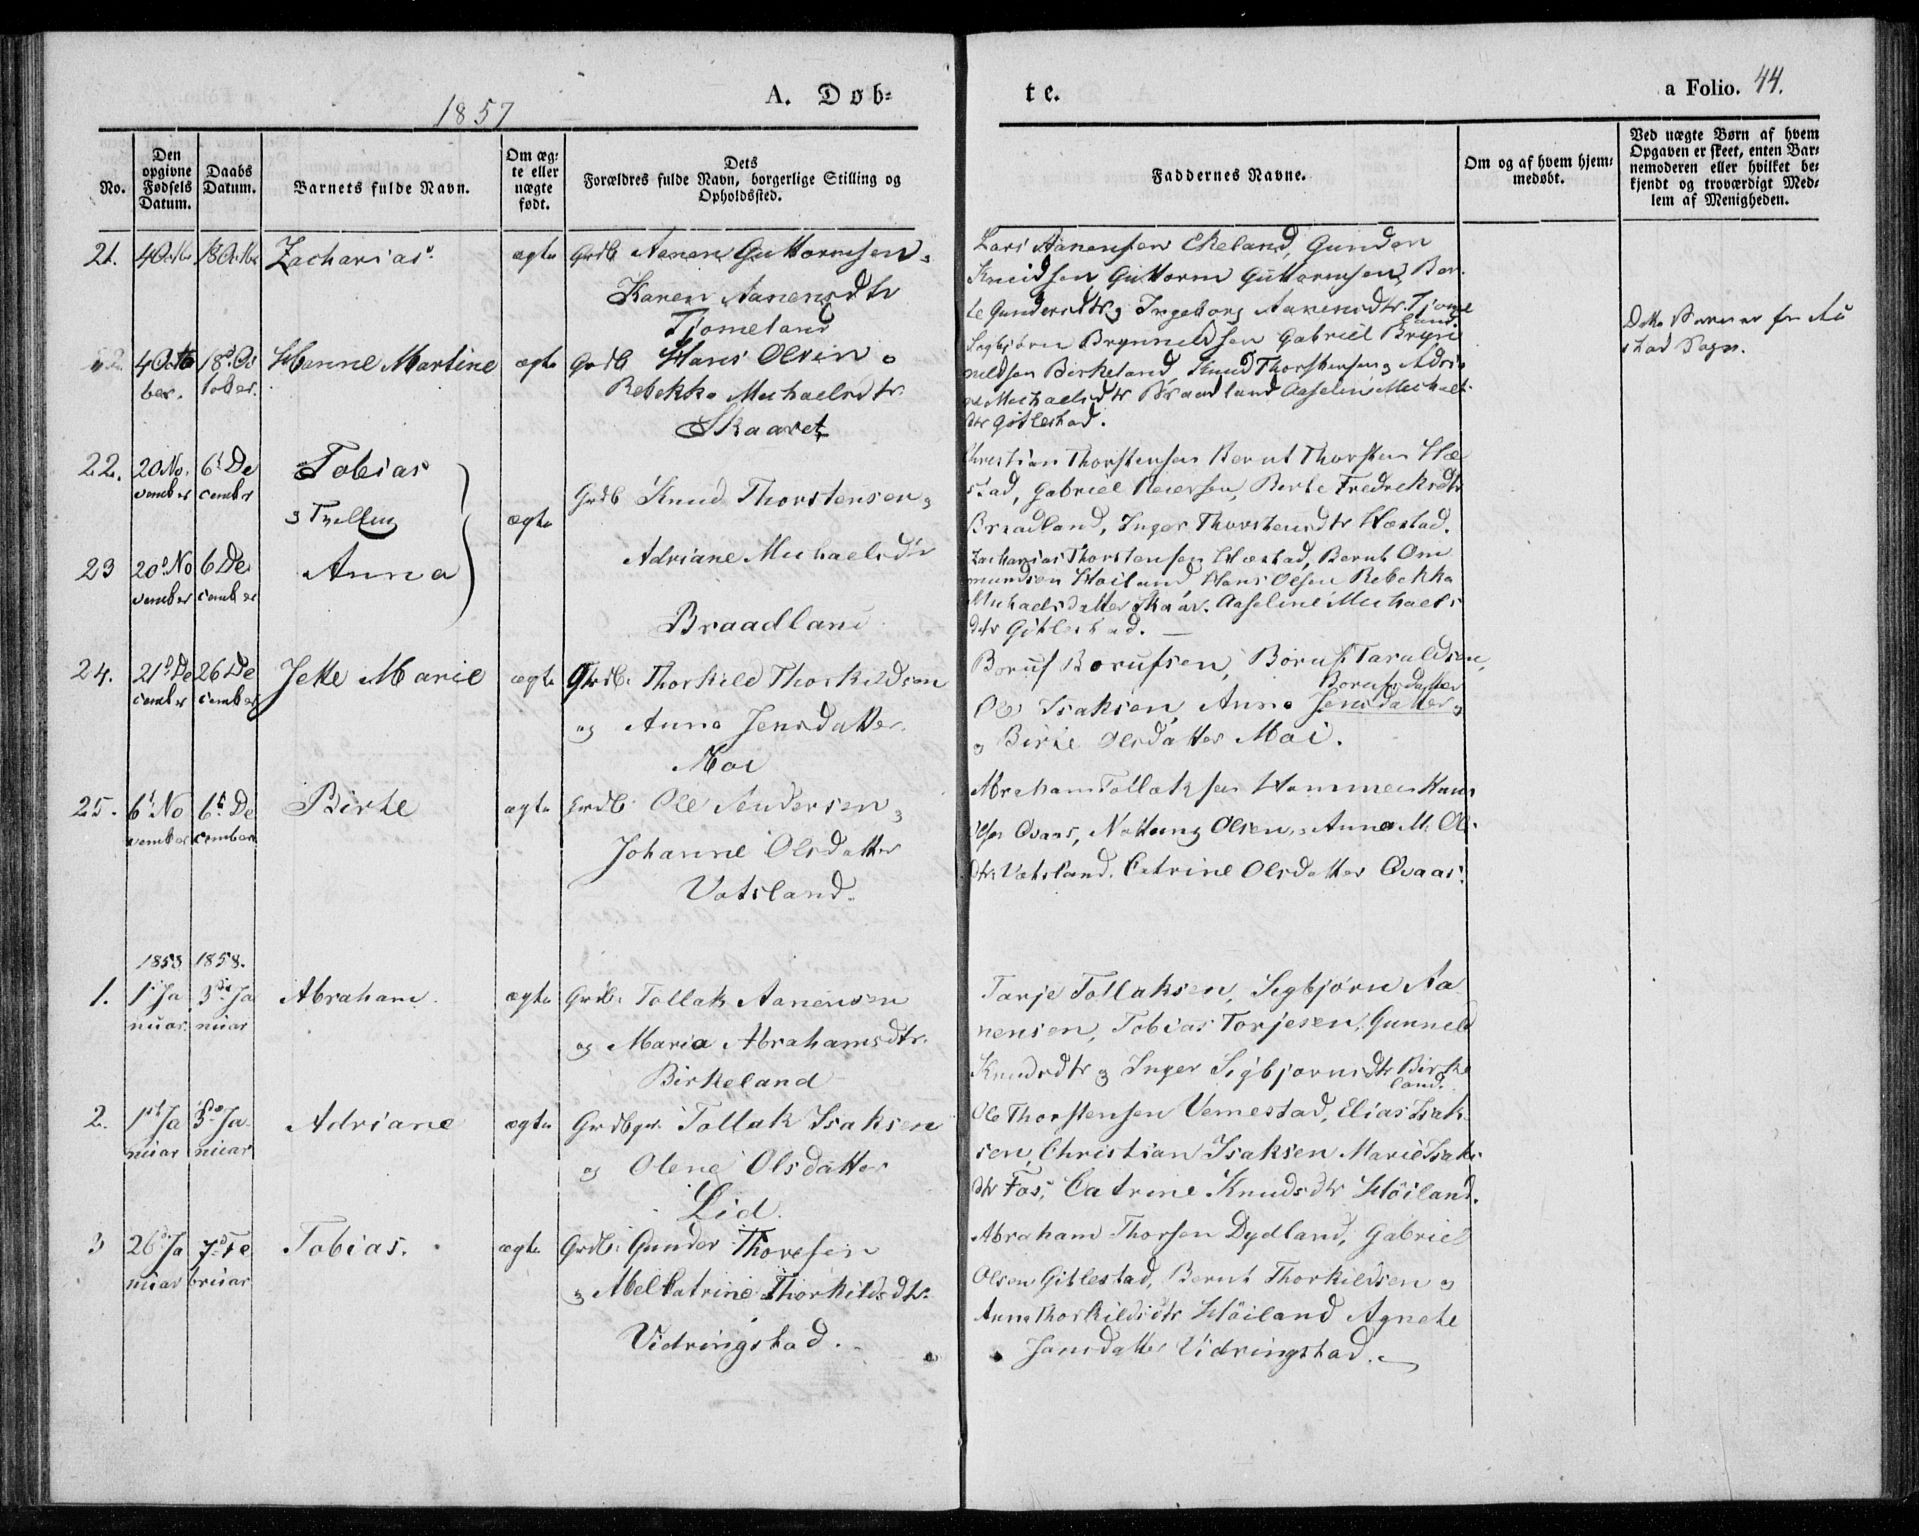 1857
A. Døb-
te.
a Folio. 44.
No.
Den
opgivne
Fødsels
Datum.
Daabs
Datum.
Barnets fulde Navn.
Om æg-
te eller
nægte
født.
Dets
Forældres fulde Navn, borgerlige Stilling og
Opholdssted.
Faddernes Navne.
Om og af hvem hjem-
medøbt.
Ved nægte Børn af hvem
Opgaven er skeet, enten Bar-
nemoderen eller hvilket be-
kjendt og troværdigt Med-
lem af Menigheden.
21.
Zacharias
ægte
Grdb Aanen Guttormsen
Karen Aanensdtr
Tjomeland
Lars Aanensen Ekeland, Gunder
Knudsen Guttorm Guttormsen, Ber-
te Gundersdtr og Ingeborg Aanensdtr Tjome
land
18 Oc
tober.
Hanne Martine
ægte
Grdb Hans Olsen
Rebekka Michaelsdtr
Skaaret
Sigbjørn Brynnildsen Gabriel Bryn
nildsen Birkeland, Knud Thorstensen Adri
Michaelsdtr Braadland Aaseline Michaels
dtr Gitlestad.
22.
20 No
vember
6 De
cember
Tobias
Tvilling
Grdb Knud Thorstensen
Christian Thorstensen Bernt Thorsten Hæ
stad, Gabriel Reiersen, Berte Fredreksdtr
Braadland, Inger Thorstensdtr Hæstad.
23
20 No
vember
6 De
cember
Anna
ægte
Adriane Michaelsdtr
Braadland
Zacharias Thorstensen Hæstad, Bernt Om
mundsen Høiland Hans Olsen Rebekka
Michaelsdatter Skaar. Aaseline Michaels
dtr Gitlestad.
24.
21 De
cember
26 De
cember
Jette Marie
ægte
Grdb. Thorkild Thorkildsen
og Anna Jensdatter.
Moi
Boruf Borufsen, Boruf Taraldsen,
Borufsdatter
Ole Isaksen, Anna Jensdatter
og Birte Olsdatter Moi.
25.
6 No
vember
6 De
cember
Birte
ægte
Grdb. Ole Andersen
Johanne Olsdatter
Vatsland.
Abraham Tollaksen Hommen Hans
Qvaas, Nottung Olsen, Anna M. Ol
dtr Vatsland. Catrine Olsdatter Qvaas.
1858
1858.
1.
1 Ja
nuar
3 Ja
nuar
Abraham.
ægte
Grdb. Tollak Aanensen
og Maria Abrahamsdtr.
Birkeland
Tarje Tollaksen, Sigbjørn Aa
nensen, Tobias Torjesen, Gunneld
Knudsdtr og Inger Sigbjørnsdtr Birke
land.
2.
1st Ja
nuar
3 Ja
nuar
Adriane
ægte
Tollak Isaksen
og Olene Olsdatter
Lid.
Ole Thorstensen Vemestad, Elias Isak
sen, Christian Isaksen Marie Isaks
dtr Fos, Catrine Knudsdtr Høiland.
3
26 Ja
nuar
7 Fe
bruar
Tobias.
ægte
Grdb. Gunder Thoresen
og Abel Catrine Thorkildsdtr.
Vidringstad.
Abraham Thorsen Dydland, Gabriel
Olsen Gitlestad, Bernt Thorkildsen og
Anna Thorkildsdtr Høiland Agnete
Jansdatter Vidringstad.
Dette Barn er fra Au
stad Sogn.